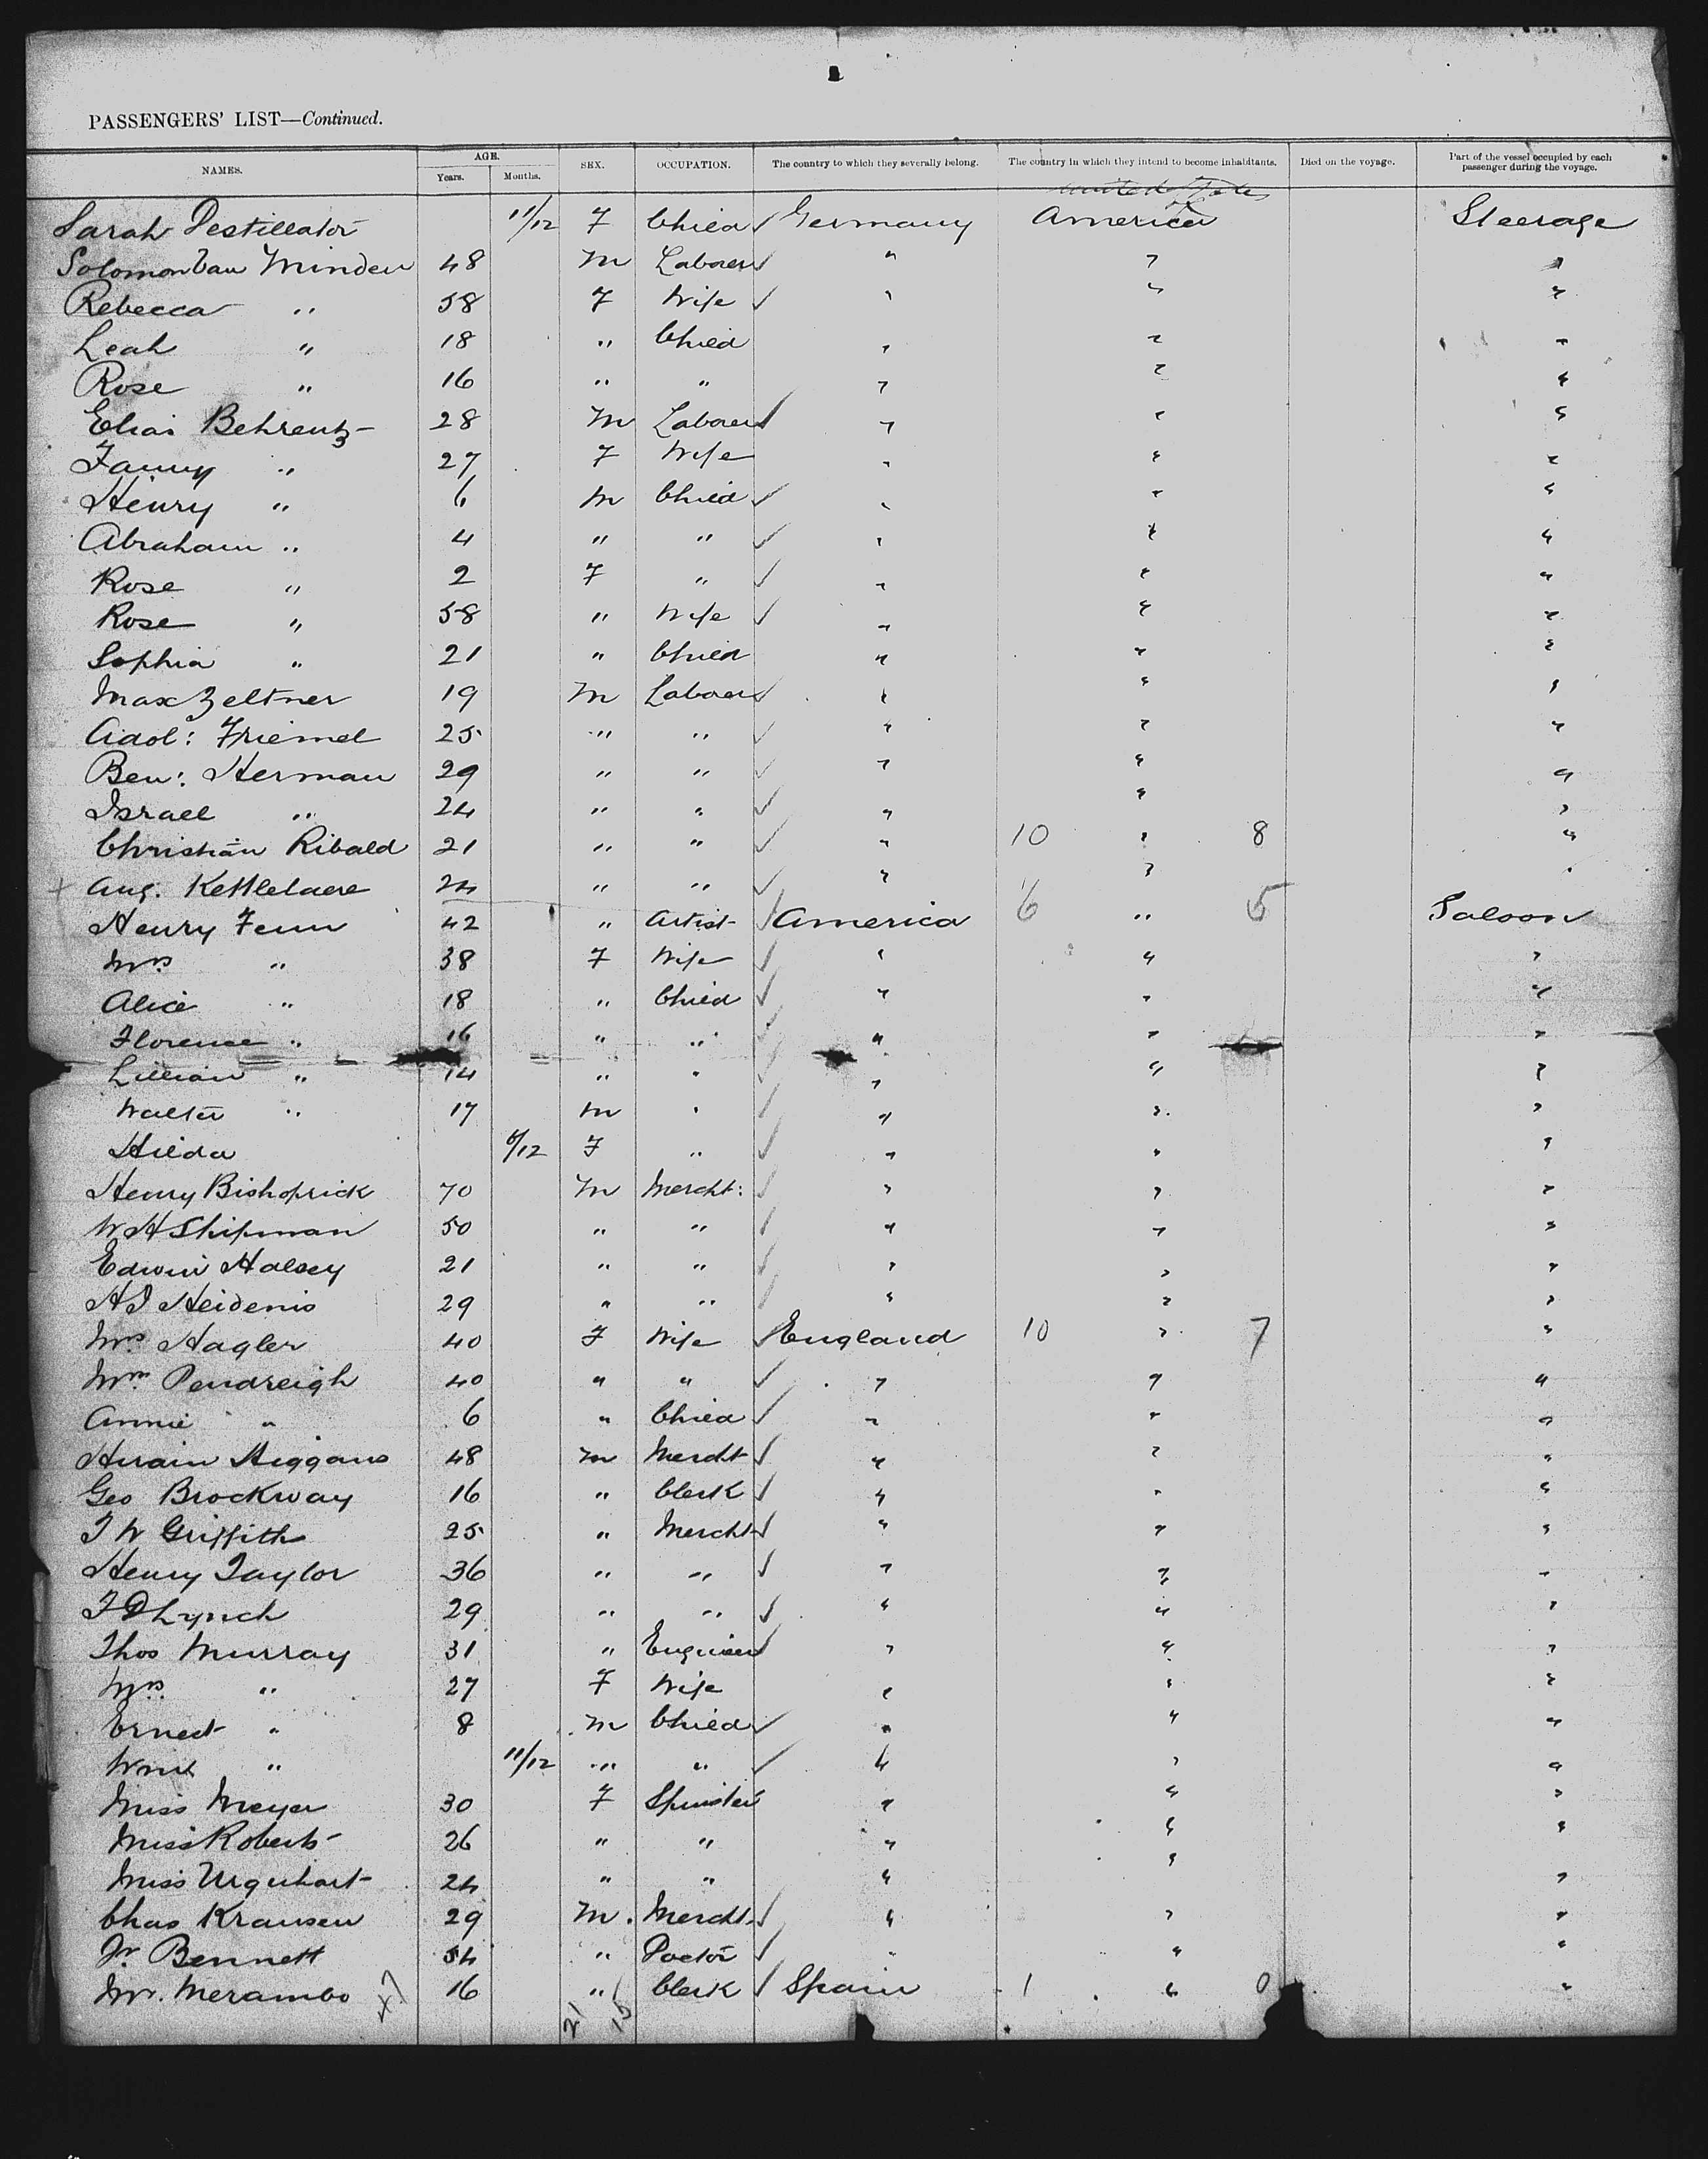 PASSENGERS' LIST—Continued.
NAMES. AGE. Years. Months. SEX. OCCUPATION. The country to which they severally belong. The country in which they intend to become inhabitants. Died on the voyage. Part of the vessel occupied by each passenger during the voyage.
United States
Sarah Pestillator 11/12 F Child Germany America Steerage
Solomon Van Minden 48 M Laborer " " "
Rebecca " 58 F Wife " " "
Leah " 18 " Child " " "
Rose " 16 " " " " "
Elias Behrentz 28 M Laborer " " "
Fanny " 27 F Wife " " "
Henry " 6 M Child " " "
Abraham " 4 " " " " "
Rose " 2 F " " " "
Rose " 58 " Wife " " "
Sophia " 21 " Child " " "
Max Zeltner 19 M Laborer " " "
Adol: Friemel 25 " " " " "
Ben: Herman 29 " " " " "
Israel " 24 " " " " "
Christian Ribald 21 " " " 10 " 8 "
+ Aug. Kettlelaere 24 " " " " "
Henry Fenn 42 " Artist America 6 " 5 Saloon
Mrs " 38 F Wife " " "
Alice " 18 " Child " " "
Florence " 16 " " " " "
Lillian " 14 " " " " "
Walter " 17 M " " " "
Hilda 6/12 F " " " "
Henry Bishoprick 70 M Mercht: " " "
W H Shipman 50 " " " " "
Edwin Halsey 21 " " " " "
H J Heidenis 29 " " " " "
Mrs Hagler 40 F Wife England 10 " 7 "
Mrs Pendreigh 40 " " " " "
Annie " 6 " Child " " "
Hiram Higgans 48 M Mercht " " "
Geo Brockway 16 " Clerk " " "
T W Griffith 25 " Mercht " " "
Henry Taylor 36 " " " " "
J D Lynch 29 " " " " "
Thos Murray 31 " Engineer " " "
Mrs " 27 F Wife " " "
Ernest " 8 M Child " " "
Wm " 11/12 " " " " "
Miss Meyer 30 F Spinster " " "
Miss Roberts 26 " " " " "
Miss Urquhart 24 " " " " "
Chas Kransen 29 M. Mercht. " " "
Dr. Bennett 54 " Doctor " " "
Mr. Merambo 16 " Clerk Spain 1 " 0 "
47 21 15